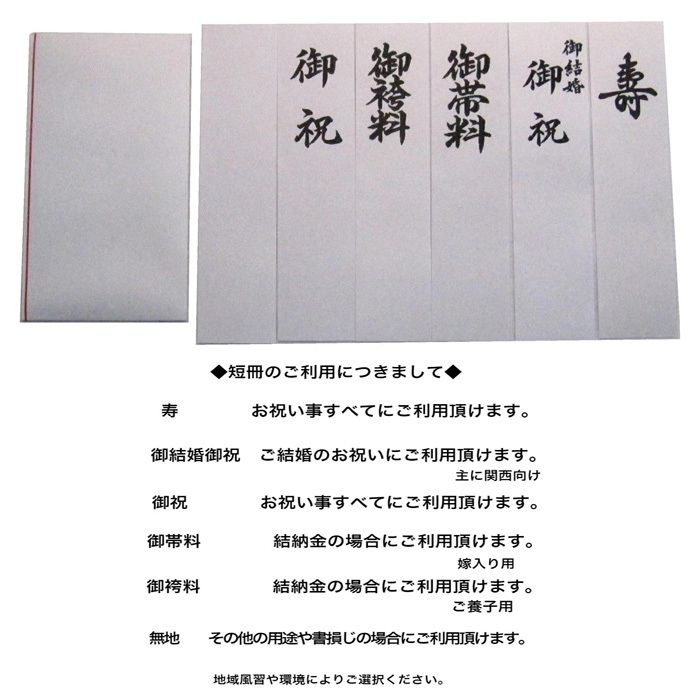 寿
御結婚
御祝
御帯料
御袴料
御祝
◆短冊のご利用につきまして◆
寿 お祝い事すべてにご利用頂けます。
御結婚御祝 ご結婚のお祝いにご利用頂けます。
主に関西向け
御祝 お祝い事すべてにご利用頂けます。
御帯料 結納金の場合にご利用頂けます。
嫁入り用
御袴料 結納金の場合にご利用頂けます。
ご養子用
無地 その他の用途や書損じの場合にご利用頂けます。
地域風習や環境によりご選択ください。